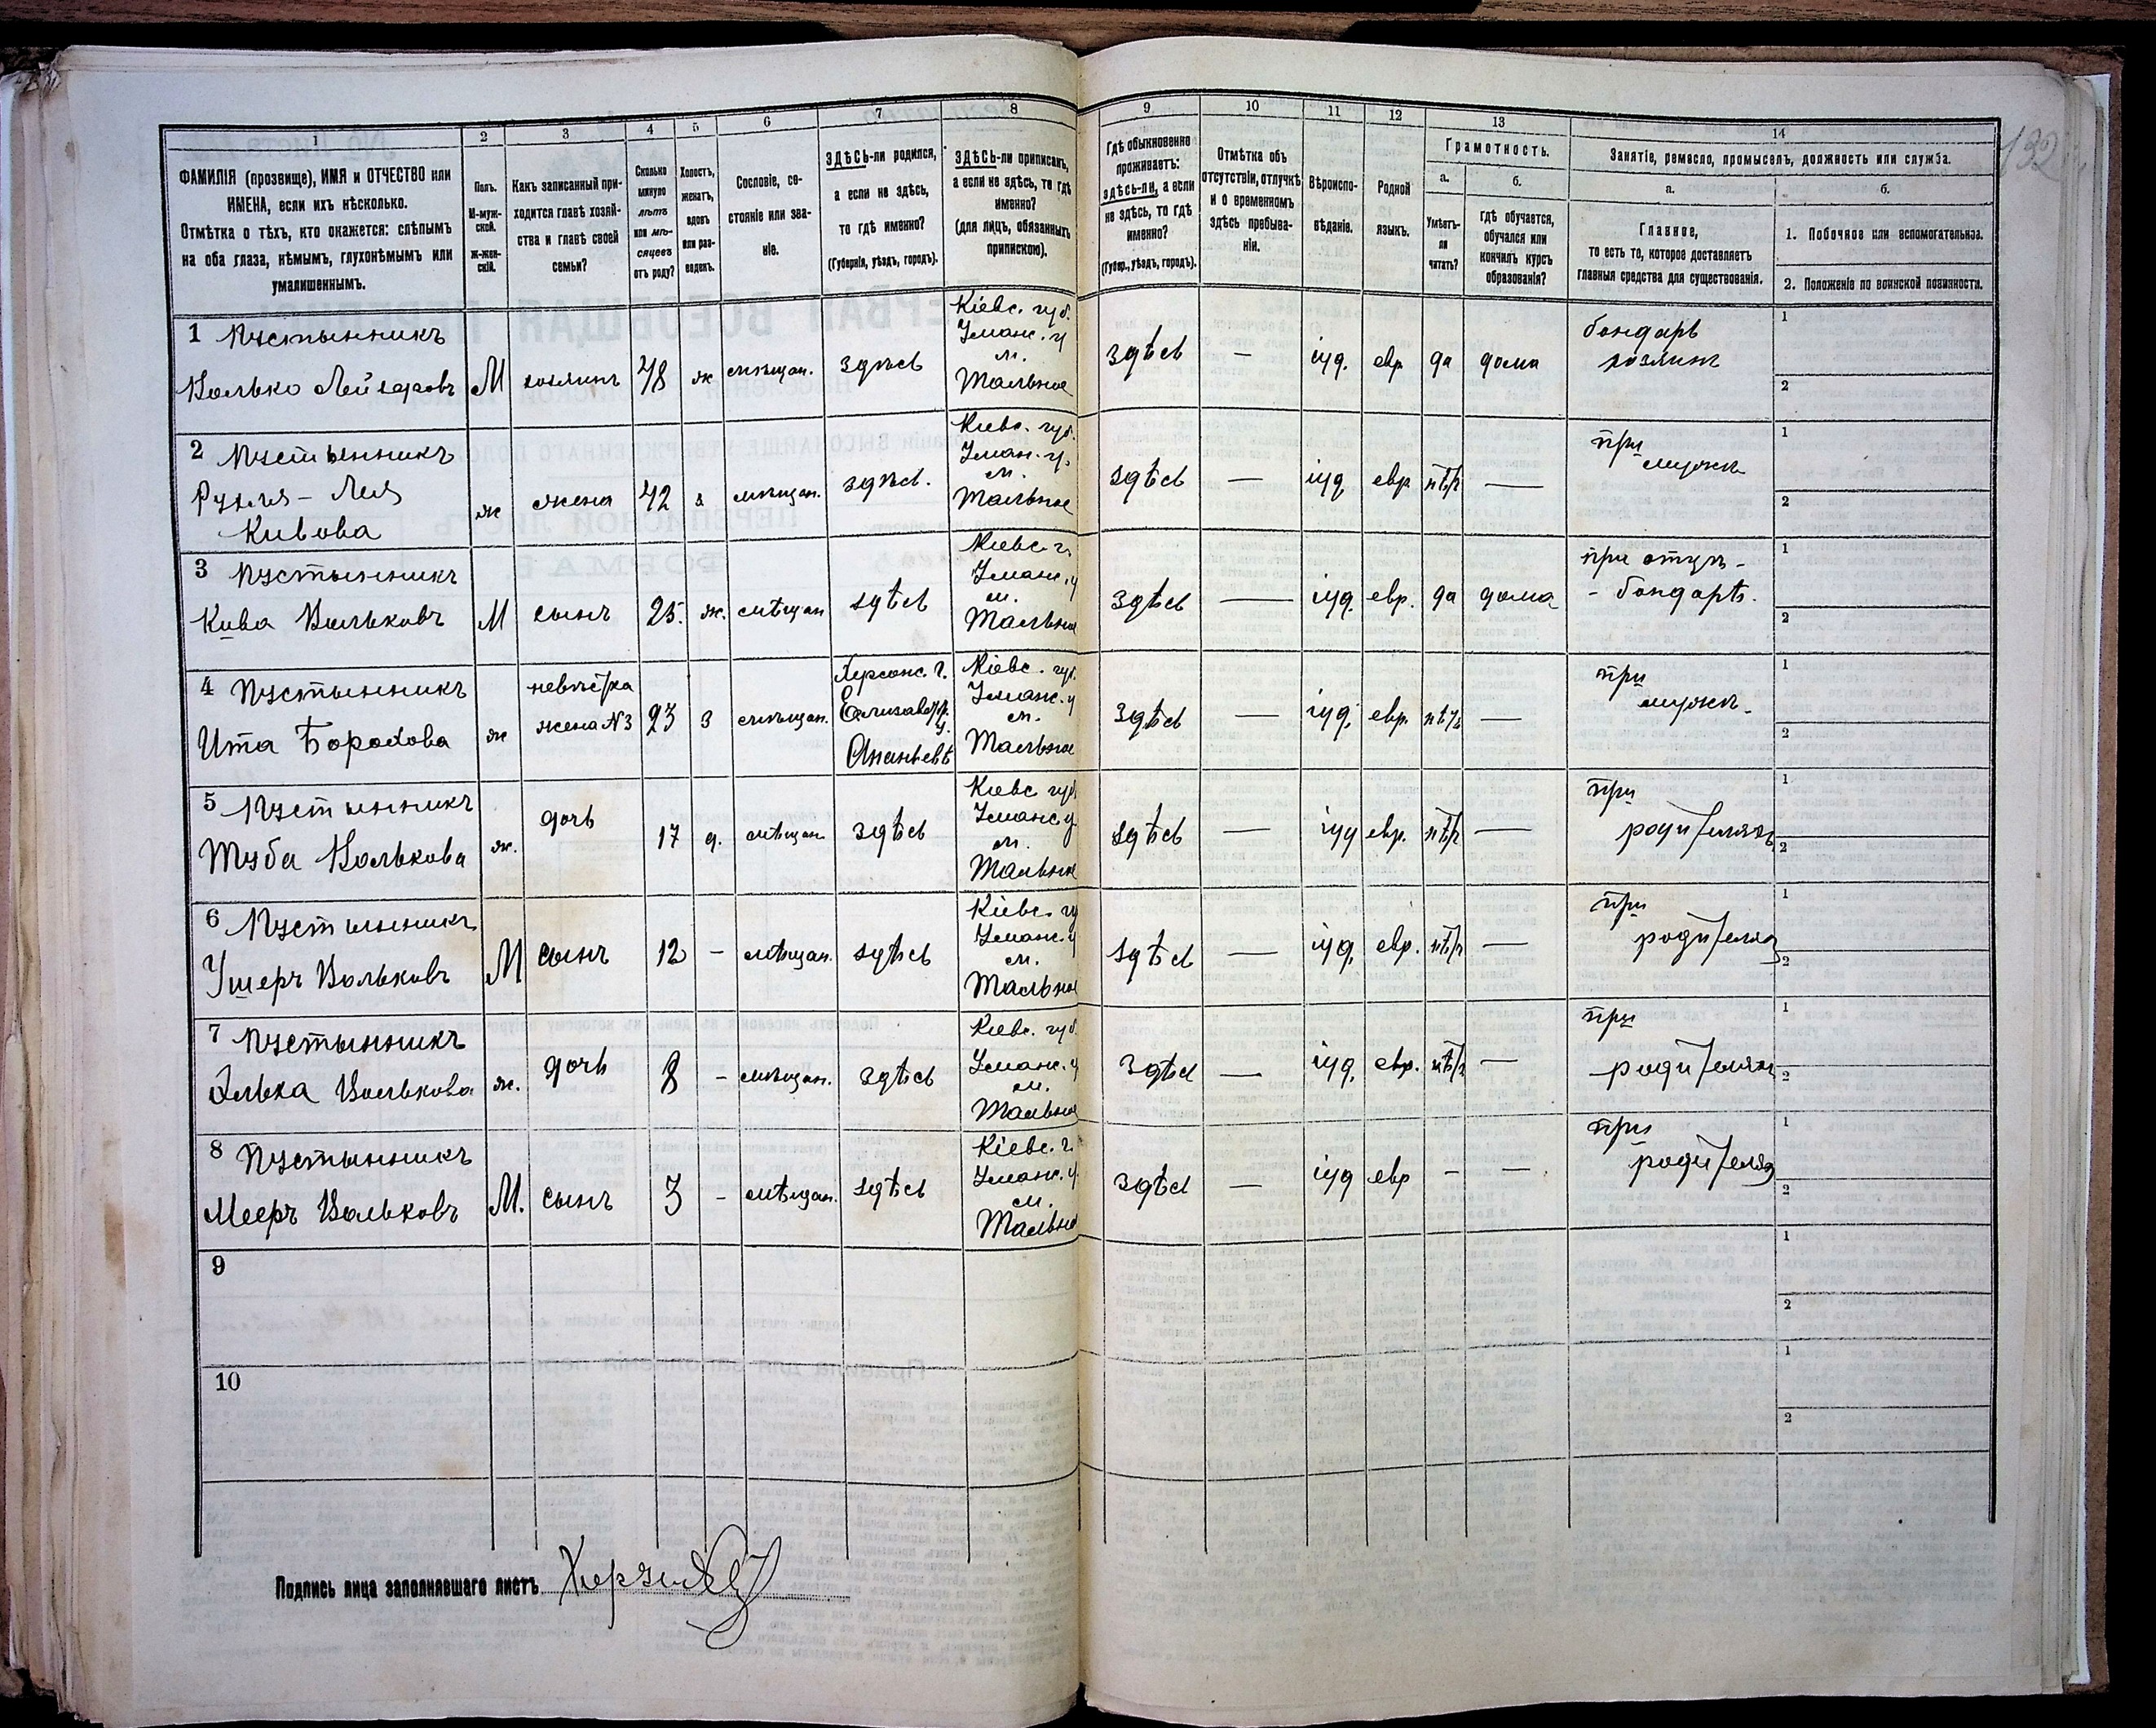 132
1 2 3 4 5 6 7 8 9 10 11 12 13 14
ФАМИЛІЯ (прозвище), ИМЯ и ОТЧЕСТВО или
ИМЕНА, если ихъ нѣсколько.
Отмѣтка о тѣхъ, кто окажется: слѣпымъ
на оба глаза, нѣмымъ, глухонѣмымъ или
умалишеннымъ.
Полъ.
М-муж-
ской.
Ж-жен-
скій.
Какъ записанный при-
ходится главѣ хозяй-
ства и главѣ своей
семьи?
Сколько
минуло
лѣтъ
или мѣ-
сяцевъ
отъ роду?
Холостъ,
женатъ,
вдовъ
или раз-
веденъ.
Сословіе, со-
стояніе или зва-
ніе.
ЗДѢСЬ-ли родился,
а если не здѣсь,
то гдѣ именно?
(Губернія, уѣздъ, городъ).
ЗДѢСЬ-ли приписанъ,
а если не здѣсь, то гдѣ
именно?
(для лицъ, обязанныхъ
припискою).
Гдѣ обыкновенно
проживаетъ:
здѣсь-ли, а если
не здѣсь, то гдѣ
именно?
(Губер., уѣздъ, городъ).
Отмѣтка объ
отсутствіи, отлучкѣ
и о временномъ
здѣсь пребыва-
ніи.
Вѣроиспо-
вѣданіе.
Родной
языкъ.
Грамотность.
а.
Умѣетъ-
ли
читать?
б.
Гдѣ обучается,
обучался или
кончилъ курсъ
образованія?
Занятіе, ремесло, промыселъ, должность или служба.
а.
Главное,
то есть то, которое доставляетъ
главныя средства для существованія.
б.
1. Побочное или вспомогательное.
2. Положеніе по воинской повинности.
1 Пустынникъ
Волько Лейзеровъ
М
хозяинъ
48
ж
мѣщан.
здѣсь
Кіевс. губ.
Уманс. у
м.
Тальное
здѣсь
—
іуд.
евр
да
дома
бондарь
хозяинъ
1
2
2 Пустынникъ
Рухля - Лея
Кивова
ж
жена
42
з
мѣщан.
здѣсь.
Киевс. губ.
Уман. у.
м.
Тальное
здѣсь
—
іуд.
евр
нѣт
—
при
мужѣ
1
2
3 Пустынникъ
Кива Вольковъ
М
сынъ
25.
ж.
мѣщан
здѣсь
Киевс. г.
Уманс. у
м.
Тальное
здѣсь
—
іуд.
евр.
да
дома
при отцѣ -
- бондарѣ.
1
2
4 Пустынникъ
Ита Борохова
ж
невѣстка
жена №3
23
з
мѣщан.
Херсонс. г.
Елизаветгр.
у.
Ананьевѣ
Кіевс. губ.
Уманс. у
м.
Тальное
здѣсь
—
іуд.
евр.
нѣтъ
—
при
мужѣ.
1
2
5 Пустынникъ
Туба Волькова
ж.
дочь
17
д.
мѣщан.
здѣсь
Киевс губ
Уманс у.
м.
Тальное
здѣсь
—
іуд
евр.
нѣт
—
при
родителяхъ
1
2
6 Пустынникъ
Ушеръ Вольковъ
М
сынъ
12
-
мѣщан.
здѣсь
Киевс. гу
Уманс. у
м.
Тальное
здѣсь
—
іуд.
евр.
нѣт
—
при
родителях
1
2
7 Пустынникъ
Элька Волькова
ж.
дочь
8
-
мѣщан.
здѣсь
Киевс. губ.
Уманс. у
м.
Тальное
здѣсь
—
іуд.
евр.
нѣт
—
при
родителях
1
2
8 Пустынникъ
Мееръ Вольковъ
М.
сынъ
3
-
мѣщан.
здѣсь
Кіевс. г.
Уманс. у.
м.
Тально
здѣсь
—
іуд
евр
-
—
при
родителях
1
2
9
1
2
10
1
2
Подпись лица заполнявшаго листъ